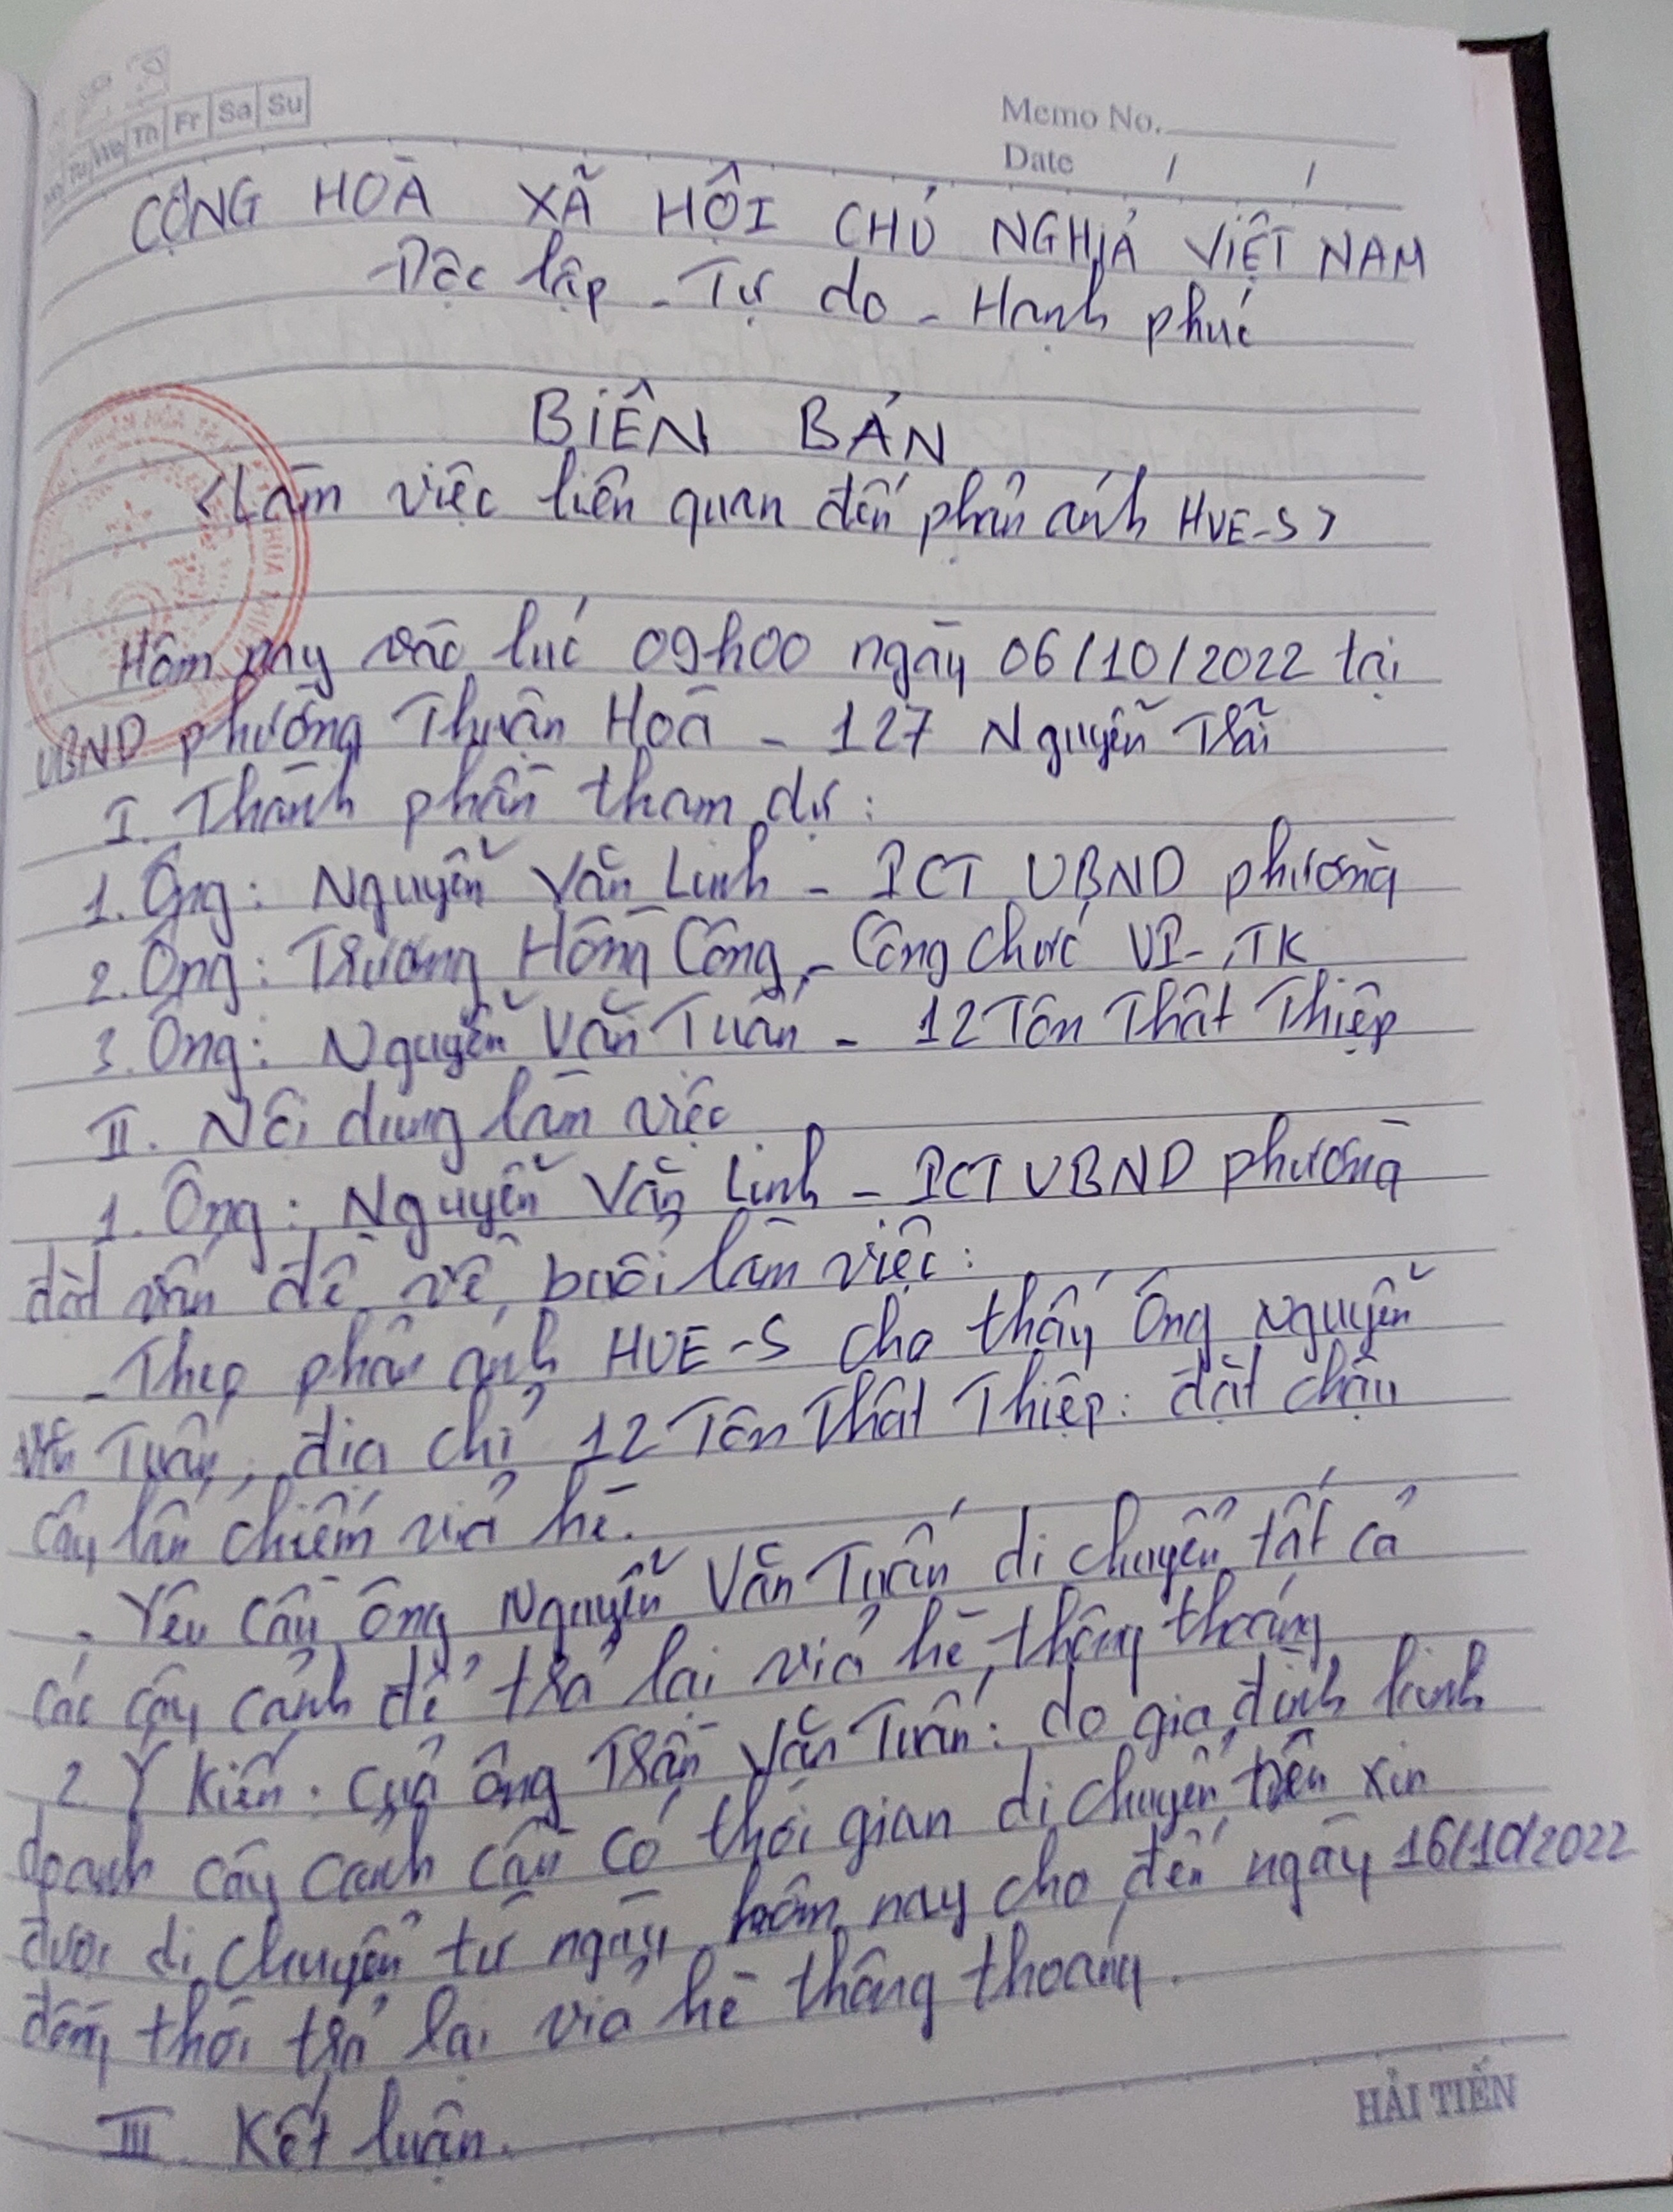 Mo Tu We Th Fr Sa Su
Memo No.
Date / /
CỘNG HOÀ XÃ HỘI CHỦ NGHĨA VIỆT NAM
Độc lập - Tự do - Hạnh phúc
BIÊN BẢN
<Làm việc liên quan đến phản ánh HUE-S>
Hôm nay vào lúc 09h00 ngày 06/10/2022 tại
UBND phường Thuận Hoà - 127 Nguyễn Trãi
I. Thành phần tham dự:
1. Ông: Nguyễn Văn Linh - PCT UBND phường
2. Ông: Trương Hồng Công - Công chức VP-TK
3. Ông: Nguyễn Văn Tuấn - 12 Tôn Thất Thiệp
II. Nội dung làm việc
1. Ông: Nguyễn Văn Linh - PCT UBND phường
đặt vấn đề về buổi làm việc:
- Theo phản ánh HUE-S cho thấy Ông Nguyễn
Văn Tuấn, địa chỉ 12 Tôn Thất Thiệp: đặt chậu
cây lấn chiếm vỉa hè.
- Yêu cầu ông Nguyễn Văn Tuấn di chuyển tất cả
các cây cảnh để trả lại vỉa hè thông thoáng
2 Ý kiến: của ông Trần Văn Tuấn: do gia đình kinh
doanh cây cảnh cần có thời gian di chuyển, nên xin
được di chuyển từ ngày hôm nay cho đến ngày 16/10/2022
đồng thời trả lại vỉa hè thông thoáng.
III. Kết luận.
HẢI TIẾN